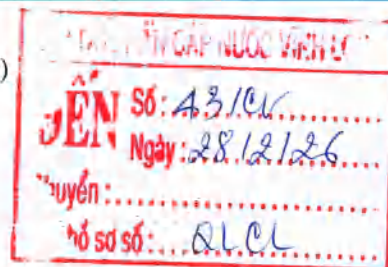 CẤP NƯỚC VĨNH
)
ĐẾN Số: 431CV
Ngày: 28/2/26
Chuyển:
hồ sơ số: QLCL